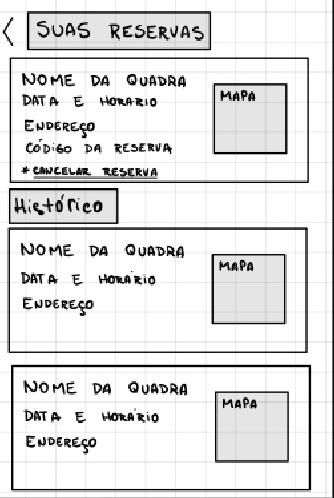 SUAS RESERVAS
NOME DA QUADRA
DATA E HORÁRIO
MAPA
ENDEREÇO
CÓDIGO DA RESERVA
* CANCELAR RESERVA
Histórico
NOME DA QUADRA
MAPA
DATA E HORÁRIO
ENDEREÇO
NOME DA QUADRA
MAPA
DATA E HORÁRIO
ENDEREÇO